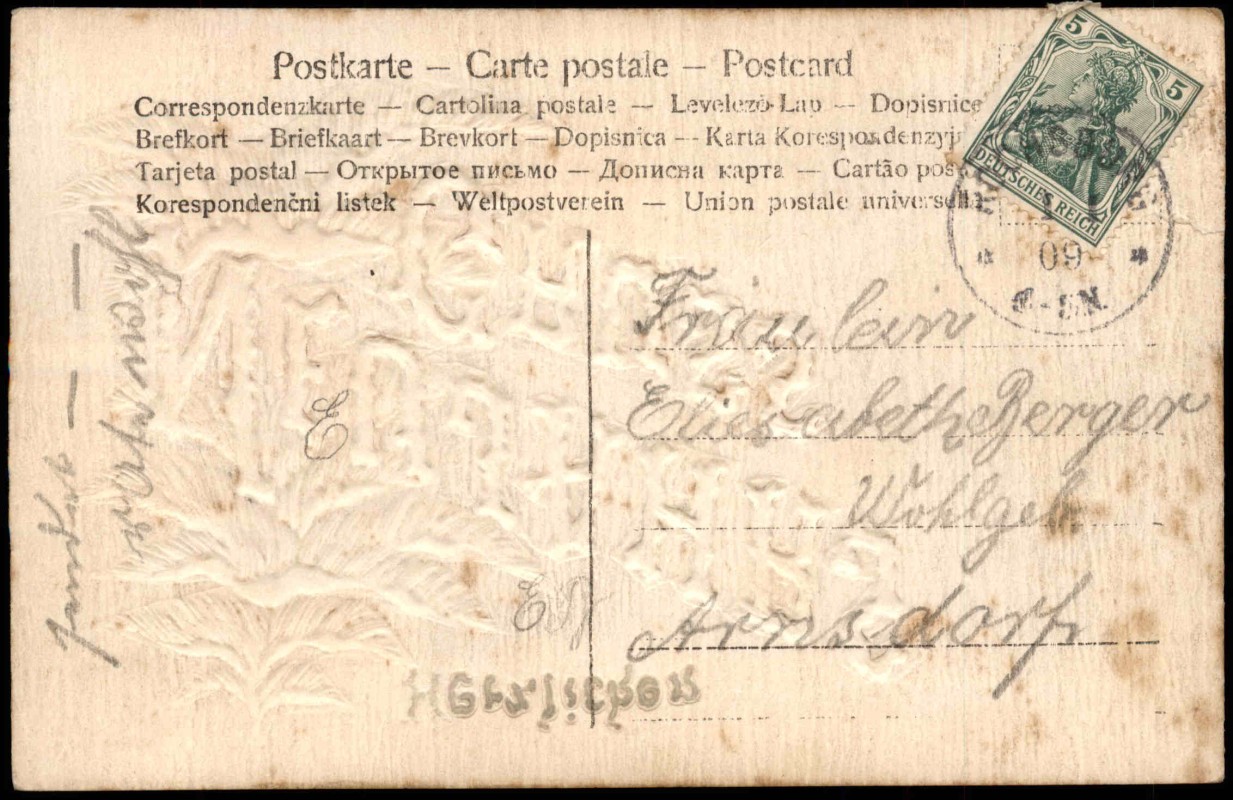 Postkarte — Carte postale — Postcard
Correspondenzkarte — Cartolina postale — Levelező-Lap — Dopisnice
Brefkort — Briefkaart — Brevkort — Dopisnica — Karta Korespondenzyj
Tarjeta postal — Открытое письмо — Дописна карта — Cartão pos
Korespondenčni listek — Weltpostverein — Union postale universella
5 5
DEUTSCHES REICH
09
Fräulein
Eliesabeth Berger
Wohlgeb
Arnsdorf
E
Herzlichen